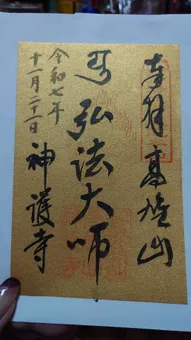 奉拝 高雄山
弘法大師
令和七年
十一月二十一日
神護寺